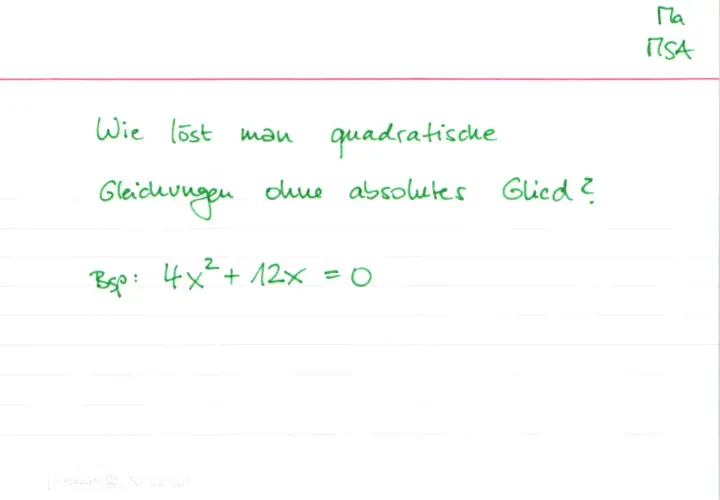 Ma
MSA
Wie löst man quadratische
Gleichungen ohne absolutes Glied?
Bsp: 4x² + 12x = 0